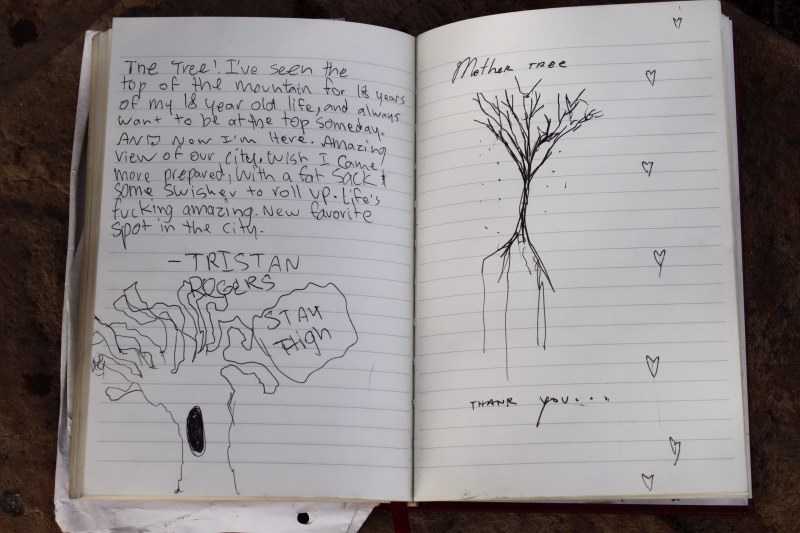 The Tree! I've seen the
top of the mountain for 18 years
of my 18 year old life, and always
want to be at the top someday.
AND Now I'm Here. Amazing
view of our city. Wish I came
more prepared, with a fat sack &
some swisher to roll up. Life's
fucking amazing. New favorite
spot in the city.
- TRISTAN
ROGERS
STAY
High
Mother TREE
THANK YOU...